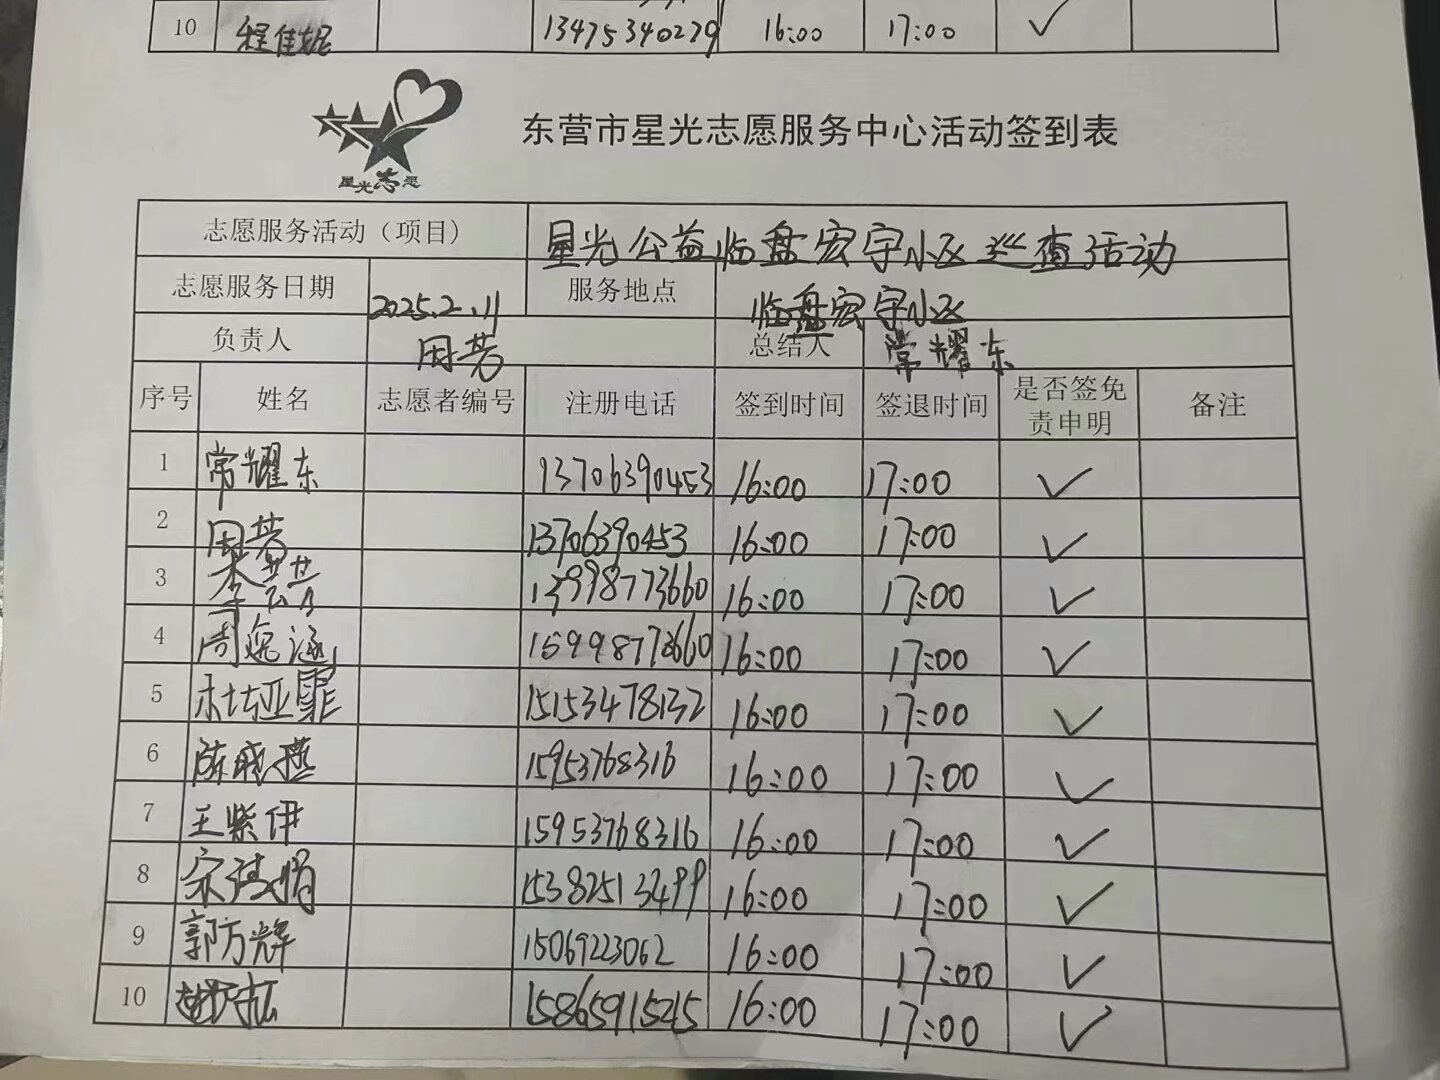 10 程佳妮 13475340279 16:00 17:00 ✓
星光志愿
东营市星光志愿服务中心活动签到表
志愿服务活动（项目） 星光公益临盘宏宇小区巡查活动
志愿服务日期 2025.2.11 服务地点 临盘宏宇小区
负责人 周芳 总结人 常耀东
序号 姓名 志愿者编号 注册电话 签到时间 签退时间 是否签免责申明 备注
1 常耀东 13706390453 16:00 17:00 ✓
2 周芳 13706390453 16:00 17:00 ✓
3 15998773660 16:00 17:00 ✓
4 周逸涵 15998773660 16:00 17:00 ✓
5 杜亚霏 15153478132 16:00 17:00 ✓
6 陈晓燕 15953768316 16:00 17:00 ✓
7 王紫伊 15953768316 16:00 17:00 ✓
8 15382513499 16:00 17:00 ✓
9 郭方辉 15069223062 16:00 17:00 ✓
10 15865915215 16:00 17:00 ✓